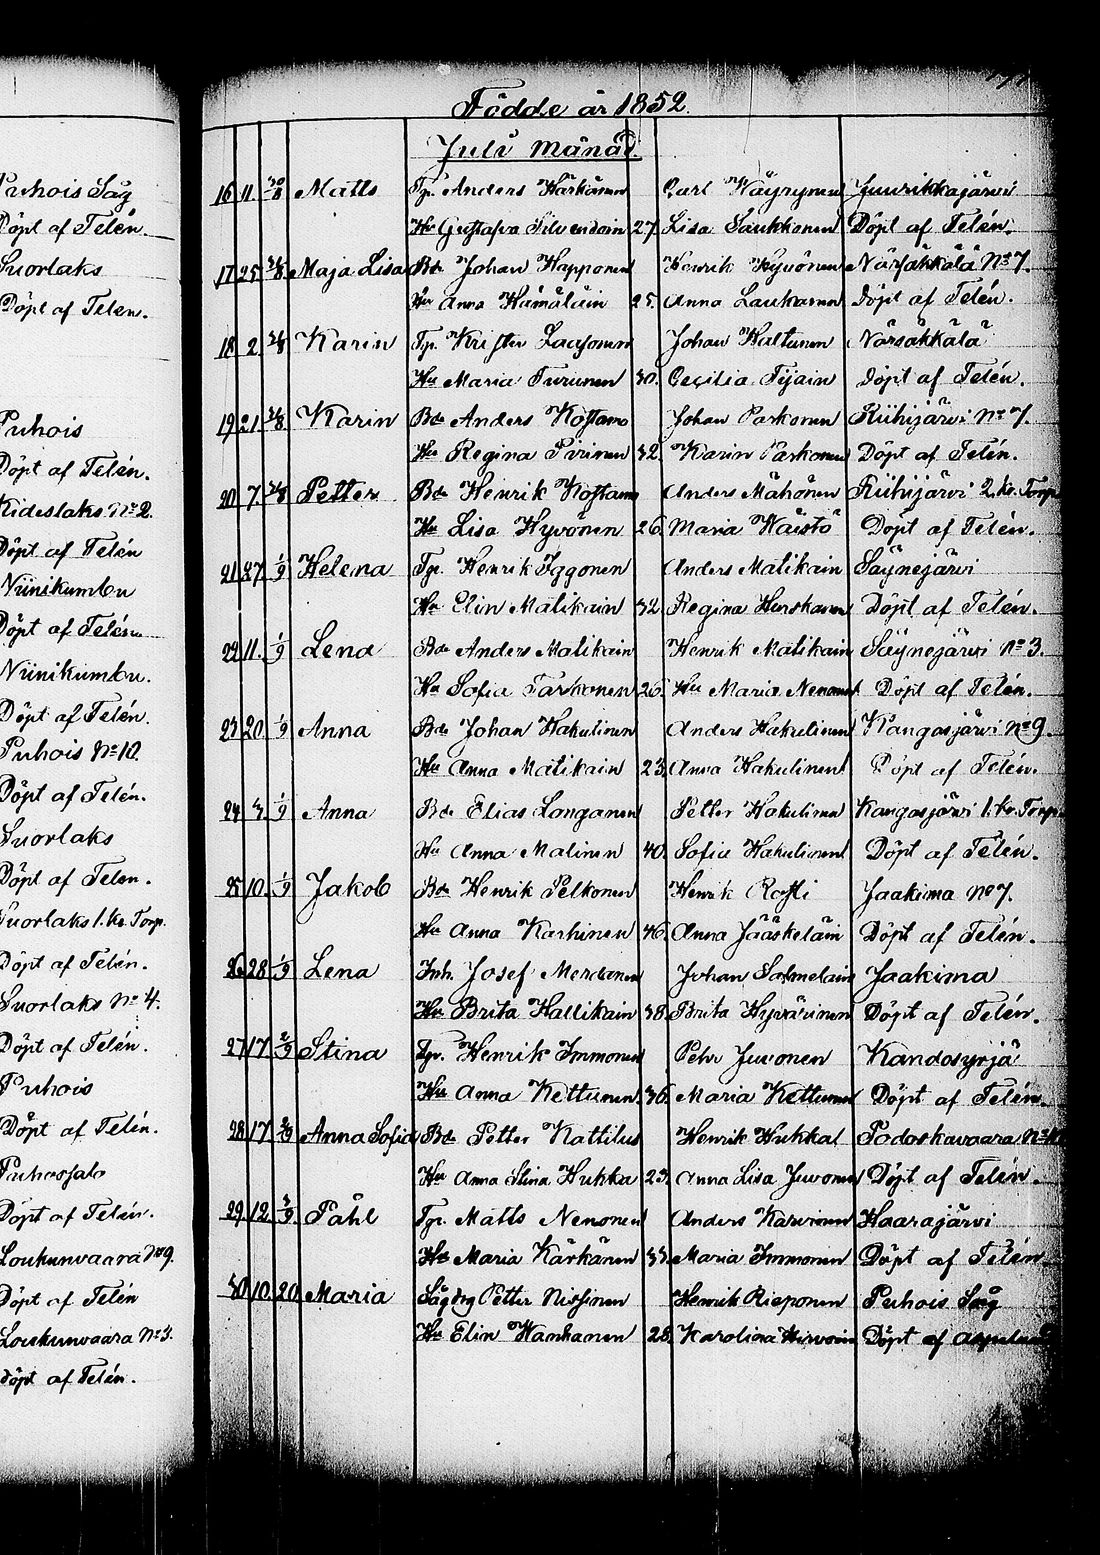 Puhois Såg
Döpt af Telén.
Suorlaks
Döpt af Telén.
Puhois
Döpt af Telén.
Kideslaks No 2.
Döpt af Telén
Niinikumbu
Döpt af Telén
Niinikumbu.
Döpt af Telén.
Puhois No 10.
Döpt af Telén.
Suorlaks
Döpt af Telén.
Suorlaks 1. kr. Torp.
Döpt af Telén.
Suorlaks No 4.
Döpt af Telén.
Puhois
Döpt af Telén.
Puhossalo
Döpt af Telén.
Loukunvaara No 9.
Döpt af Telén
Loukunvaara No 3.
Döpt af Telén.
Födde år 1852.
Juli Månad.
16 11. Matts Tp. Anders Kärkäinen Carl Wäyrynen Juurikkajärvi
Hu Gustafva Silvendoin 27. Lisa Saukkonen Döpt af Telén.
17 25 Maja Lisa Bde Johan Happonen Henrik Hyvönen Närsäkkälä No 7.
Hu Anna Hämäläin 25. Anna Laukanen Döpt af Telén.
18 2 Karin Tp. Krister Johan Haltunen Närsäkkälä
Hu Maria Turunen 30. Cecilia Tijain Döpt af Telén.
19 21 Karin Bde Anders Kostamo Johan Parkonen Riihijärvi No 7.
Hu Regina Piirinen 32. Karin Parkonen Döpt af Telén.
20 7. Petter Bde Henrik Kostamo Anders Mähönen Riihijärvi 2. kr. Torp
Hu Lisa Hyvönen 26. Maria Waistö Döpt af Telén.
21 27 1/9 Helena Tp. Henrik Iggonen Anders Malikain Säynejärvi
Hu Elin Malikain 32. Regina Hurskanen Döpt af Telén.
22 11. 1/9 Lena Bde Anders Malikain Henrik Malikain Säynejärvi No 3.
Hu Sofia Tarkonen 26. Hu Maria Nenonen Döpt af Telén.
23 20 1/9 Anna Bde Johan Hakulinen Anders Hakulinen Kangasjärvi No 9.
Hu Anna Malikain 23. Anna Hakulinen Döpt af Telén.
24 1/9 Anna Bde Elias Longanen Petter Hakulinen Kangasjärvi 1. kr. Torp
Hu Anna Malinen 40. Sofia Hakulinen Döpt af Telén.
25 10. 1/9 Jakob Bde Henrik Pelkonen Henrik Jaakima No 7.
Hu Anna Karhinen 46. Anna Jääskeläin Döpt af Telén.
26 28 1/9 Lena Inh. Josef Merdanen Johan Salmelain Jaakima
Hu Brita Hallikain 38. Brita Hyvärinen Döpt af Telén.
27 17 2/9 Stina Tp. Henrik Immonen Petr Juvonen Kandosyrjä
Hu Anna Kettunen. 36. Maria Kettunen Döpt af Telén.
28 17 Anna Sofia Bde Petter Kattilus Henrik Hukkal Podoskavaara
Hu Anna Stina Hukka 23. Anna Lisa Juvonen Döpt af Telén.
29 12. Påhl Tp. Matts Nenonen Anders Karvinen Haarajärvi
Hu Maria Kärkänen 33. Maria Immonen Döpt af Telén.
30 10. 20 Maria Petter Nissinen Henrik Rieponen Puhois Såg
Hu Elin Wanhanen 28. Karolina Hirvoin Döpt af